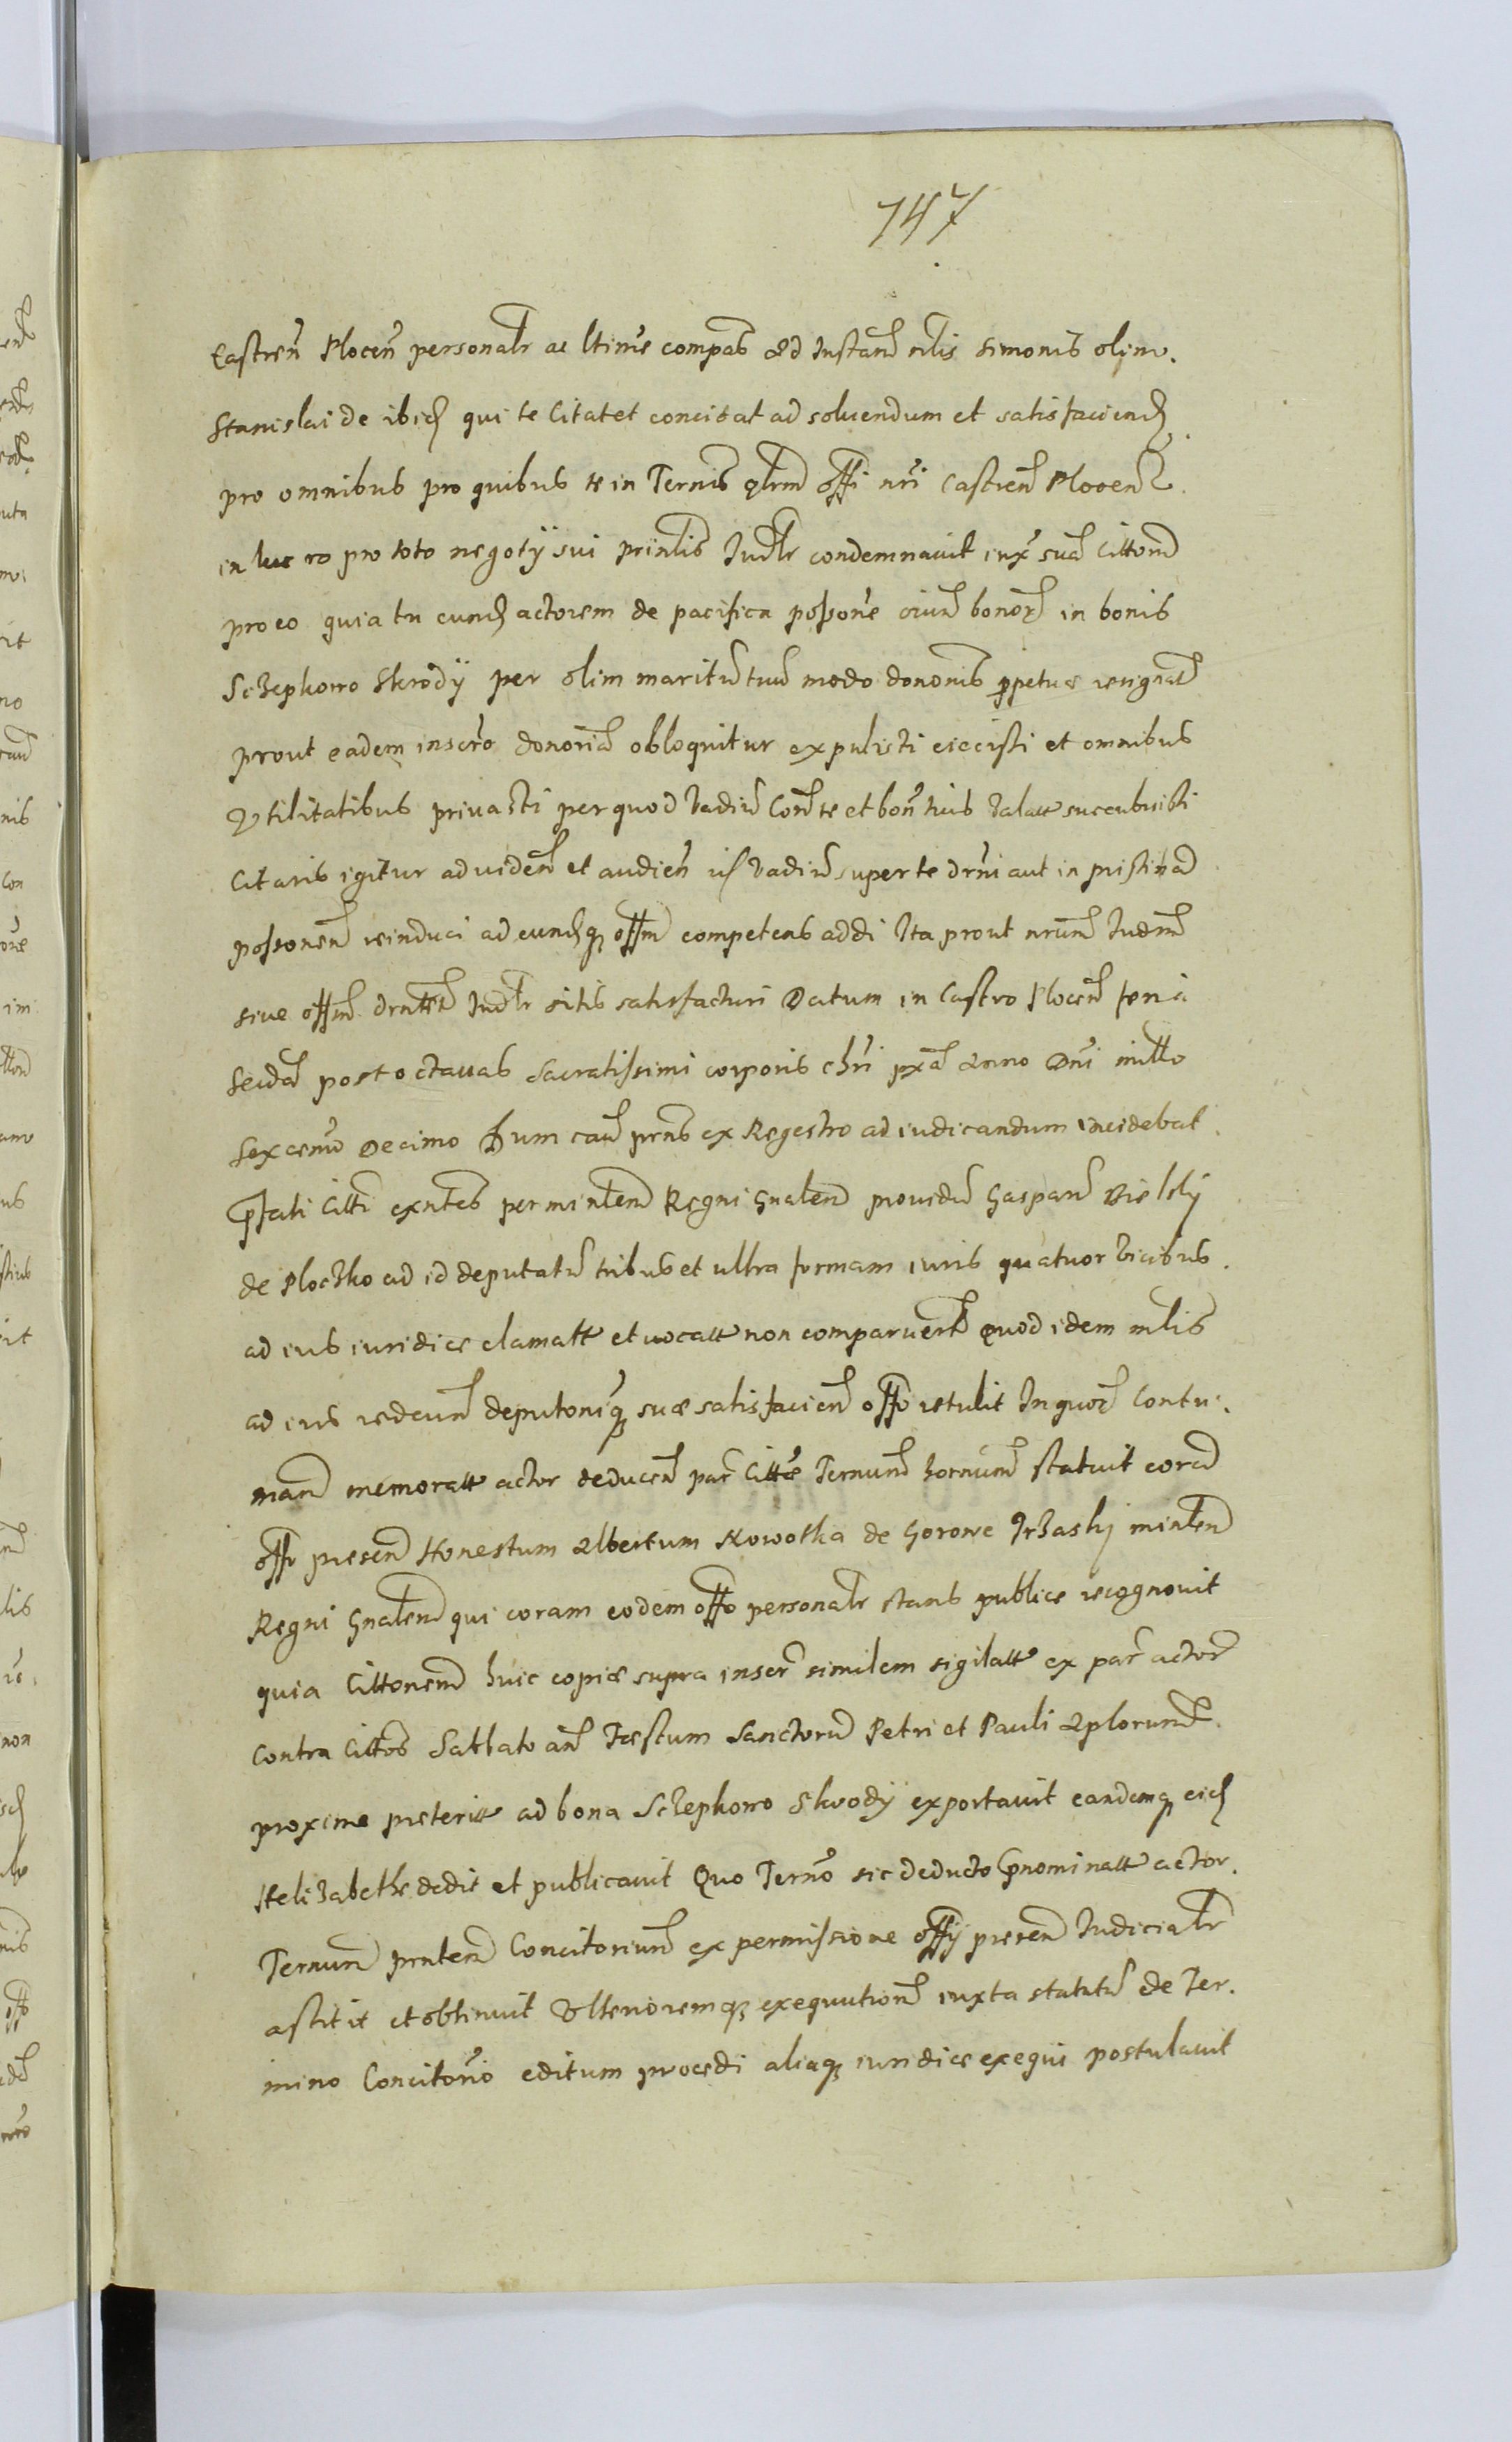 147
Castren Plocen personalr ac ltime compas Ad Instan nlis Simonis olim.
Stanislai de ibid qui te Citat et concitat ad soluendum et satisfaciend
pro omnibus pro quibus te in Ternis qlrm offi nri Castren Plocen
in lucro pro toto negoty sui prinlis Judlr condemnauit iux sua Cittone
pro eo quia tu eund actorem de pacifica possone oiun bonor in bonis
Sczepkowo Skrody per olim maritu tuu modo dononis ppetuae resignat
prout eadem inscro donoria obloquitur expulisti eiecisti et omnibus
Vtilitatibus priuasti per quod Vadiu Con te et bon tuis Valatt succubuisti
Citaris igitur ad viden et audien is Vadiu super te drni aut in pristina
possonem reinduci ad eundq offm competens addi Ita prout nrum Judm
siue offm drntte Judlr sitis satisfacturi Datum in Castro Plocen feria
Secda post octauas Sacratissimi corporis Chri pxa Anno Dni millo
Sexcenmo Decimo Dum cau prns ex Regestro ad iudicandum incidebat.
Pfati Citti exntes per minlem Regni Gnalem prouidu Gaspar Bielsky
de Ploczko ad id deputatu tribus et ultra formam iuris quatuor Vicibus.
ad ius iuridice clamatt et vocatt non comparuert Quod idem mlis
ad ius redeun deputoniq suae satisfacien offo retulit In quor Contu.
matia memoratt actor deducen par Cittae Ternum hornum statuit cora
offo presen Honestum Albertum Nowotka de Gorone Jrzasky minlem
Regni Gnalem qui coram eodem offo personalr stans publice recognouit
quia Cittonem huic copiae supra inser similem sigilatt ex par actor
Contra Cittos Sabbato an Festum Sanctoru Petri et Pauli Aplorum
proxime preteritt ad bona Sczepkowo Skrody exportauit eandemq eid
Helizabethe dedit et publicauit Quo Terno sic deducto Pnominatt actor.
Ternum prntem Concitorium ex permissione offy presen Judicialr
astitit et obtinuit Vlterioremq exequutione iuxta statutu de Ter.
mino Concitorio editum procedi aliaq iuridice exequi postulauit